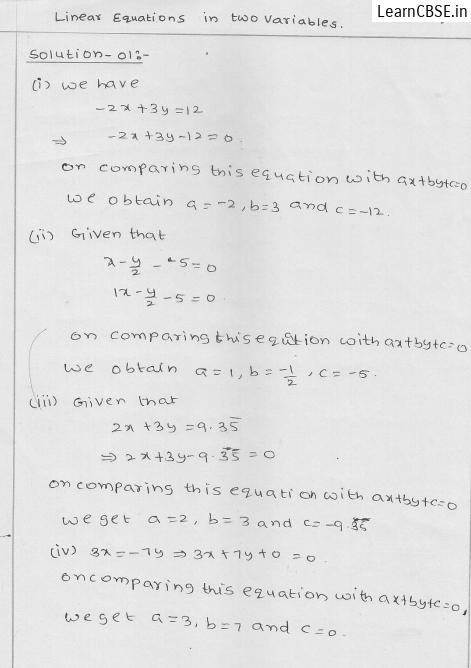 LearnCBSE.in
Linear Equations in two variables.
Solution-01:-
(i) we have
-2x+3y=12
⇒ -2x+3y-12=0.
on comparing this equation with ax+by+c=0
we obtain a=-2, b=3 and c=-12.
(ii) Given that
x-y/2-5=0
1x-y/2-5=0.
on comparing this equation with ax+by+c=0
we obtain a=1, b=-1/2, c=-5.
(iii) Given that
2x+3y=9.35̅
⇒ 2x+3y-9.3̅5̅=0
on comparing this equation with ax+by+c=0
we get a=2, b=3 and c=-9.3̅5̅
(iv) 3x=-7y ⇒ 3x+7y+0=0.
on comparing this equation with ax+by+c=0,
we get a=3, b=7 and c=0.